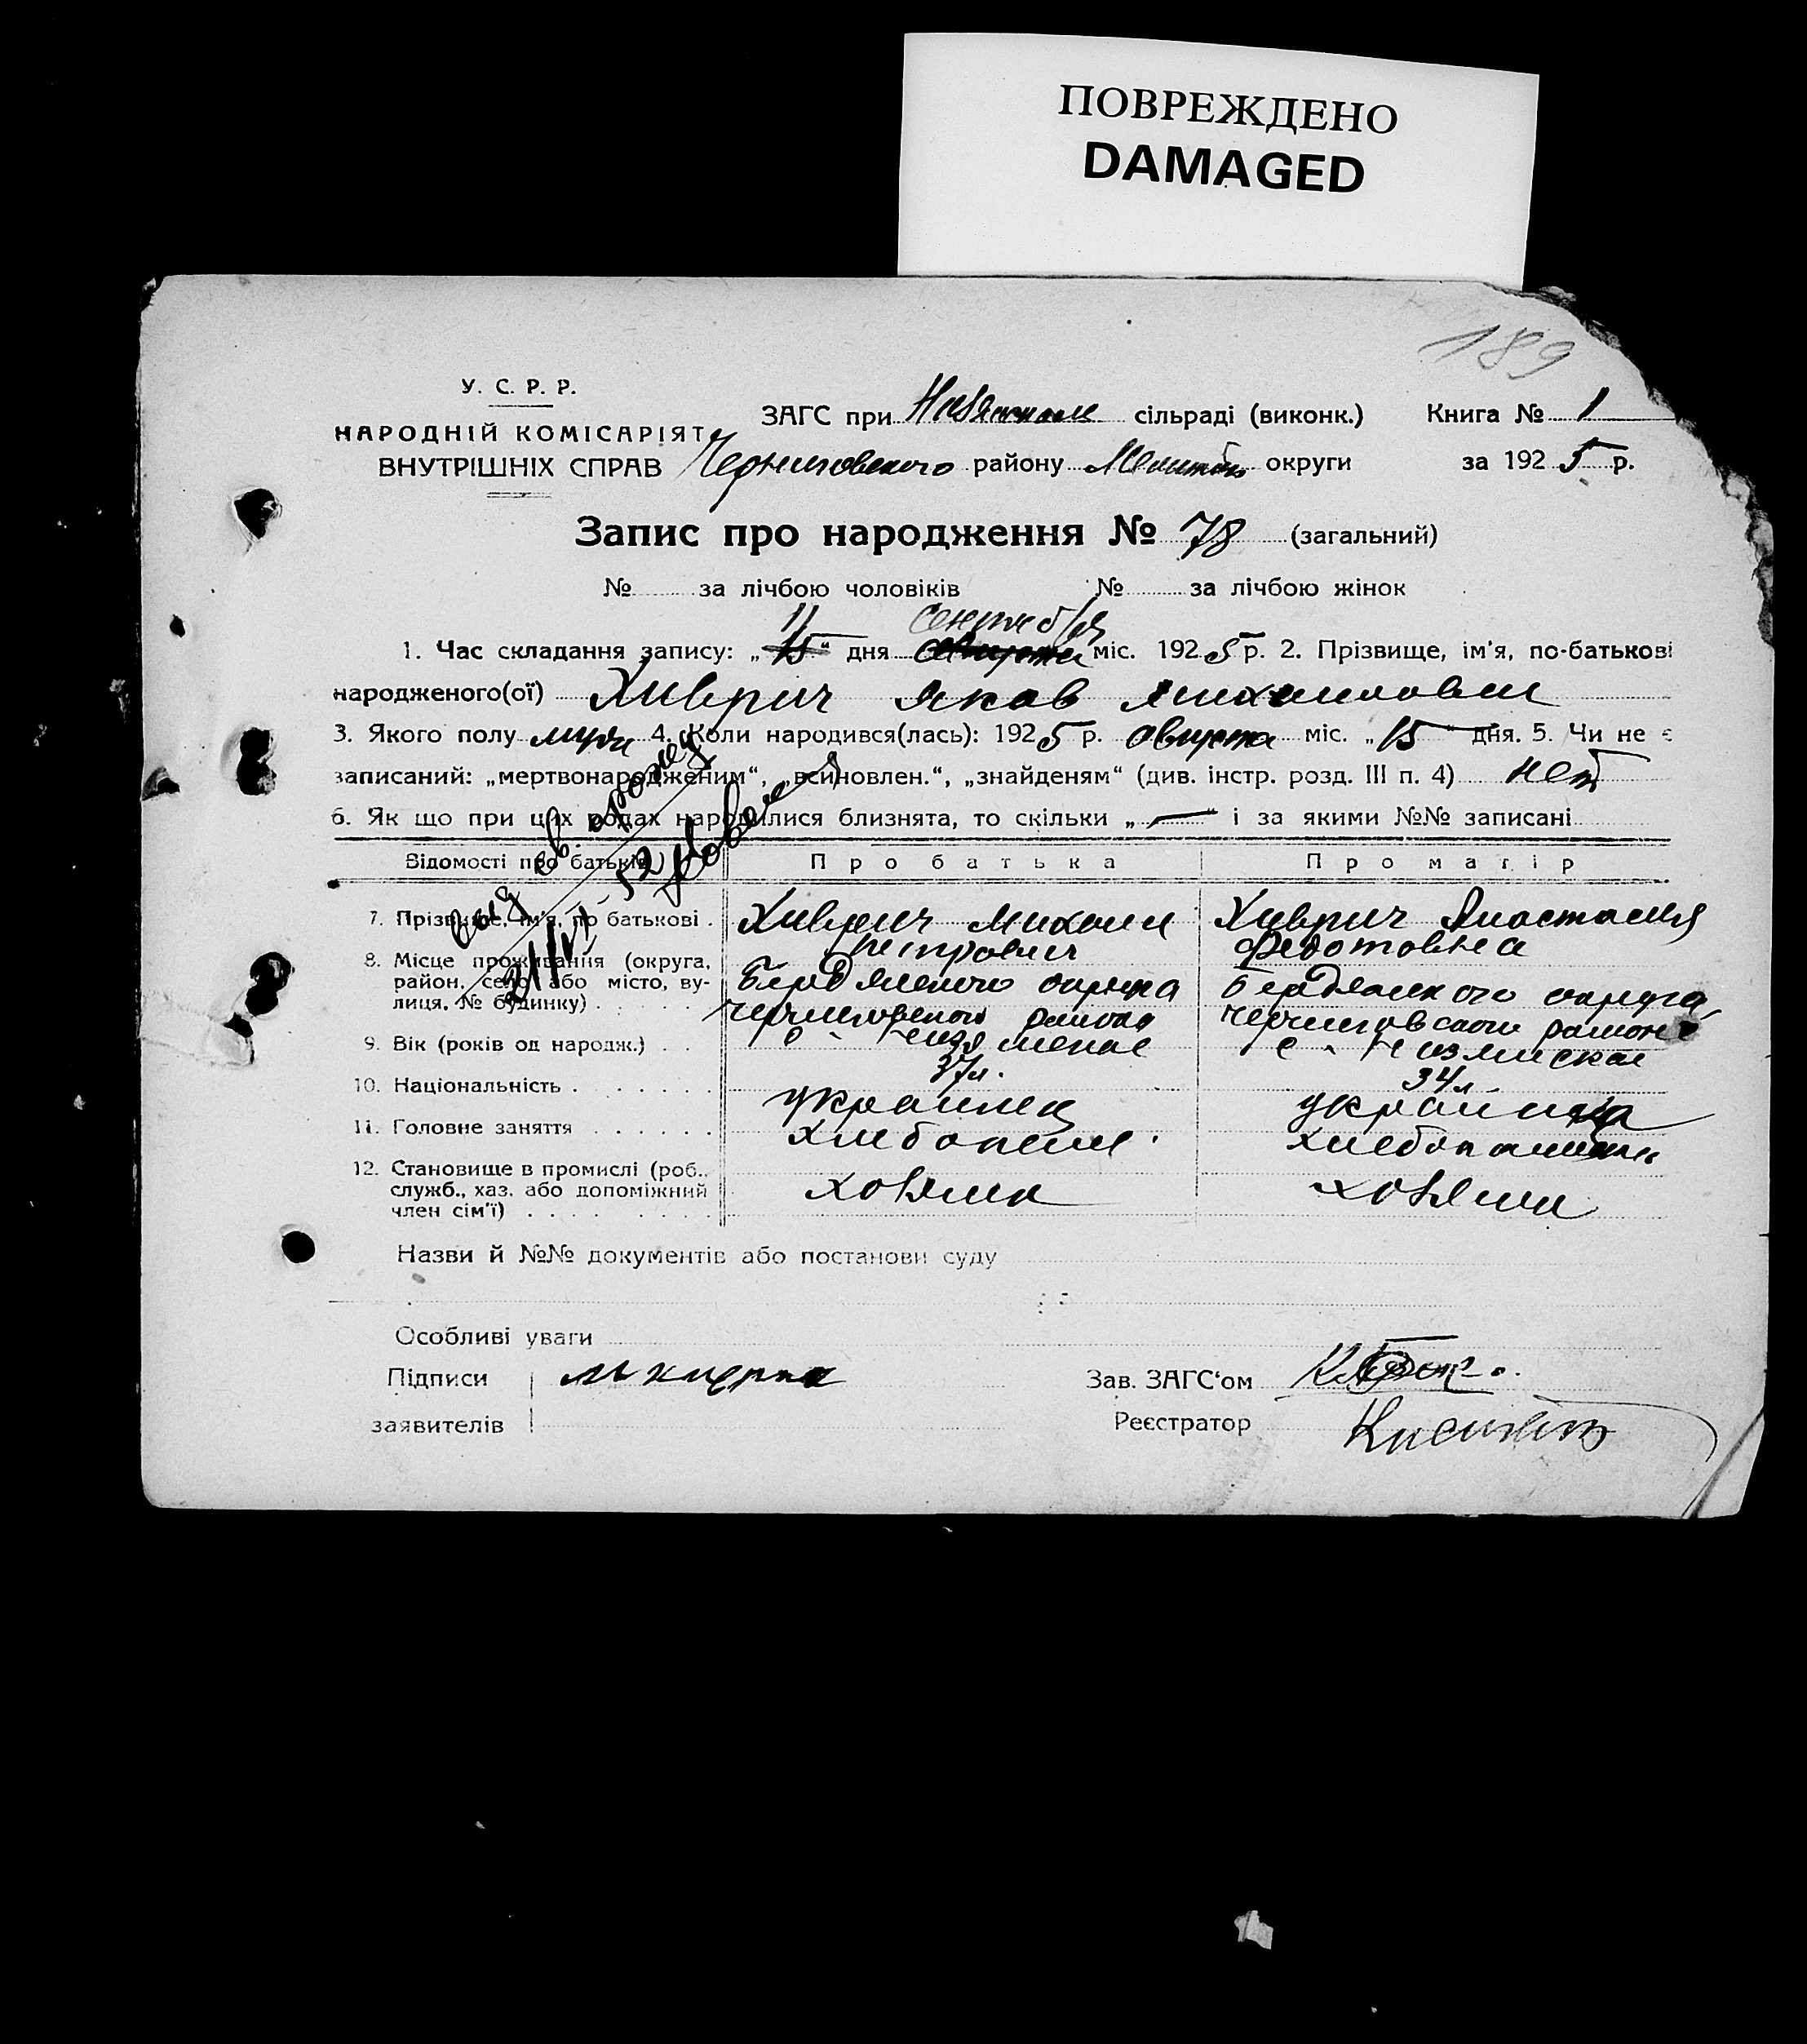 ПОВРЕЖДЕНО
DAMAGED
189
У. С. Р. Р.
НАРОДНІЙ КОМІСАРІЯТ
ВНУТРІШНІХ СПРАВ
ЗАГС при сільраді (виконк.) Книга № 1
Черниговского району округи за 1925 р.
Запис про народження № 78 (загальний)
№ за лічбою чоловіків № за лічбою жінок
11 сентября
1. Час складання запису: „15“ дня августа міс. 1925 р. 2. Прізвище, ім'я, по-батькові
народженого(ої) Хиврич Яков Михайлович
3. Якого полу муж 4. Коли народився(лась): 1925 р. августа міс. „15“ дня. 5. Чи не є
записаний: „мертвонародженим“, „всиновлен.“, „знайденям“ (див. інстр. розд. III п. 4) нет
6. Як що при цих родах народилися близнята, то скільки „—“ і за якими №№ записані
Відомості про батьків Про батька Про матір
7. Прізвище, ім'я, по батькові . Хиврич Михаил Хиврич Анастасия
Петрович Федотовна
8. Місце проживання (округа, район, село або місто, вулиця, № будинку) . Бердянского округа Бердянского округа
Черниговского района Черниговского района
9. Вік (років од народж.) . . 37 л. 34 л.
10. Національність . . . . . . . украинец украинка
11. Головне заняття . . . . . . хлебопаш.
12. Становище в промислі (роб.,
служб., хаз. або допоміжний
член сім'ї) . . . . . . . . хозяин хозяин
Назви й №№ документів або постанови суду
Особливі уваги
Підписи
заявителів
Зав. ЗАГС'ом
Реєстратор